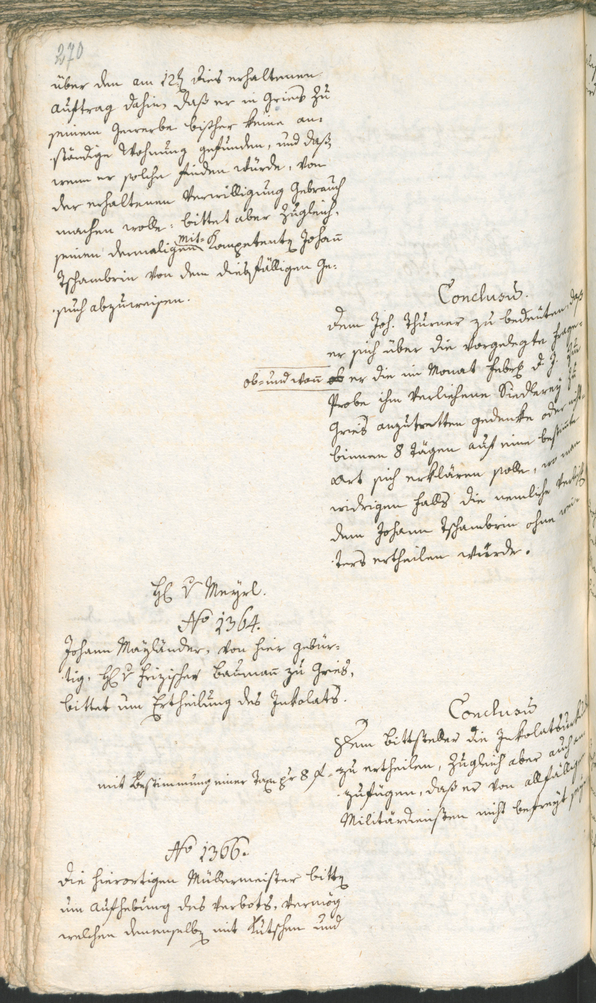 270
über den am 12ten dies erhaltenen
Auftrag dahin, daß er in Gries zu
seinem Gewerbe bißher keine an-
ständige Wohnung gefunden, und daß
wenn er solche finden würde, von
der erhaltenen Verwilligung Gebrauch
machen wolle, bittet aber zugleich,
seinen dermaligen Mit-Competenten Johann
Tschambrin von dem diesfälligen Ge-
such abzuweisen.
Conclusum.
dem Joh. Thurner zu bedeuten, daß
er sich über die vorgelegte Frage
ob- und wann er die im Monat d. J. zur
Probe ihm verliehene Siedlerey zu
Gries anzutretten gedenke oder nicht
binnen 8 Tägen auf eine bestimmte
Art sich erklären solle, wo man
widrigen falls die nemliche
dem Johann Tschambrin ohne wei-
ters ertheilen würde.
H: v Meyrl.
No 1364.
Johann Mayländer, von hier gebür-
tig, H: v Baumann zu Gries,
bittet um Ertheilung des Inkolats.
Conclusum
Dem Bittsteller die
mit Bestimmung einer Taxe pr 8 f. zu ertheilen, zugleich aber auch
zufügen, daß er von allfälligen
Militärdiensten nicht befreyt seye
No 1366.
die hierortigen Müllermeister bitten
um Aufhebung des Verbots, vermög
welchen denenselben mit Kutschen und